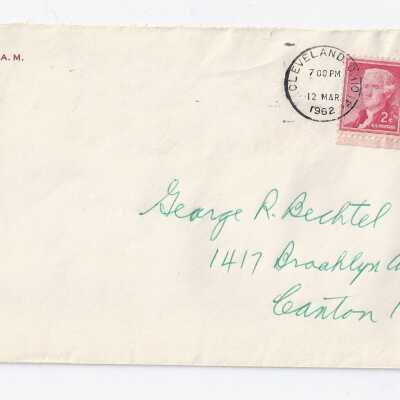 A. M.
CLEVELAND, OHIO
7 00 PM
12 MAR
1962
2¢
U.S. POSTAGE
George R. Bechtel
1417 Brooklyn A
Canton